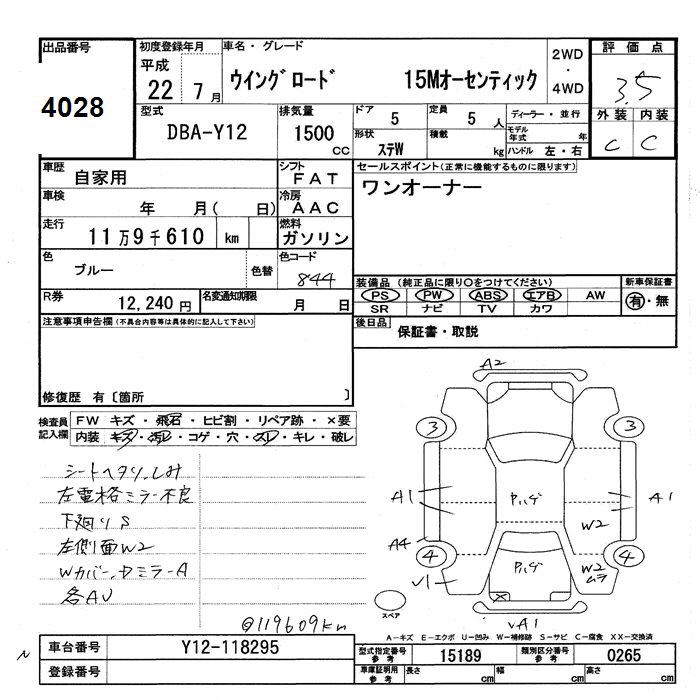 出品番号
4028
初度登録年月
平成
22 7月
車名・グレード
ウイングロード 15Mオーセンティック
2WD
・
4WD
評価点
3.5
外装 内装
C C
型式
DBA-Y12
排気量
1500
CC
ドア
5
定員
5人
ディーラー・並行
形状
ステW
積載
kg
モデル年式 年
ハンドル 左・右
車歴
自家用
シフト
FAT
車検
年 月( 日)
冷房
AAC
走行
11万9千610 km
燃料
ガソリン
色
ブルー
色替
色コード
844
R券
12,240円
名変通知期限
月 日
セールスポイント(正常に機能するものに限ります)
ワンオーナー
装備品 (純正品に限り○をつけてください)
PS PW ABS エアB AW
SR ナビ TV カワ
新車保証書
有・無
後日品
保証書・取説
注意事項申告欄(不具合内容等は具体的に記入して下さい)
修復歴 有〔箇所 〕
検査員記入欄
FW キズ・飛石・ヒビ割・リペア跡・×要
内装 キズ・汚レ・コゲ・穴・スレ・キレ・破レ
シートヘタリ、しみ
左電格ミラー不良
下廻りS
左側面W2
Wカバー、Dミラー A
各AU
@119609km
A2
3
3
A1
A1
Pハゲ
W2
A4
4
4
Pハゲ
W2
ムラ
V1
×
VA1
スペア
A-キズ E-エクボ U-凹み W-補修跡 S-サビ C-腐食 XX-交換済
車台番号
Y12-118295
登録番号
型式指定番号
参考
15189
類別区分番号
参考
0265
車庫証明用
参考
長さ cm
幅 cm
高さ cm
N